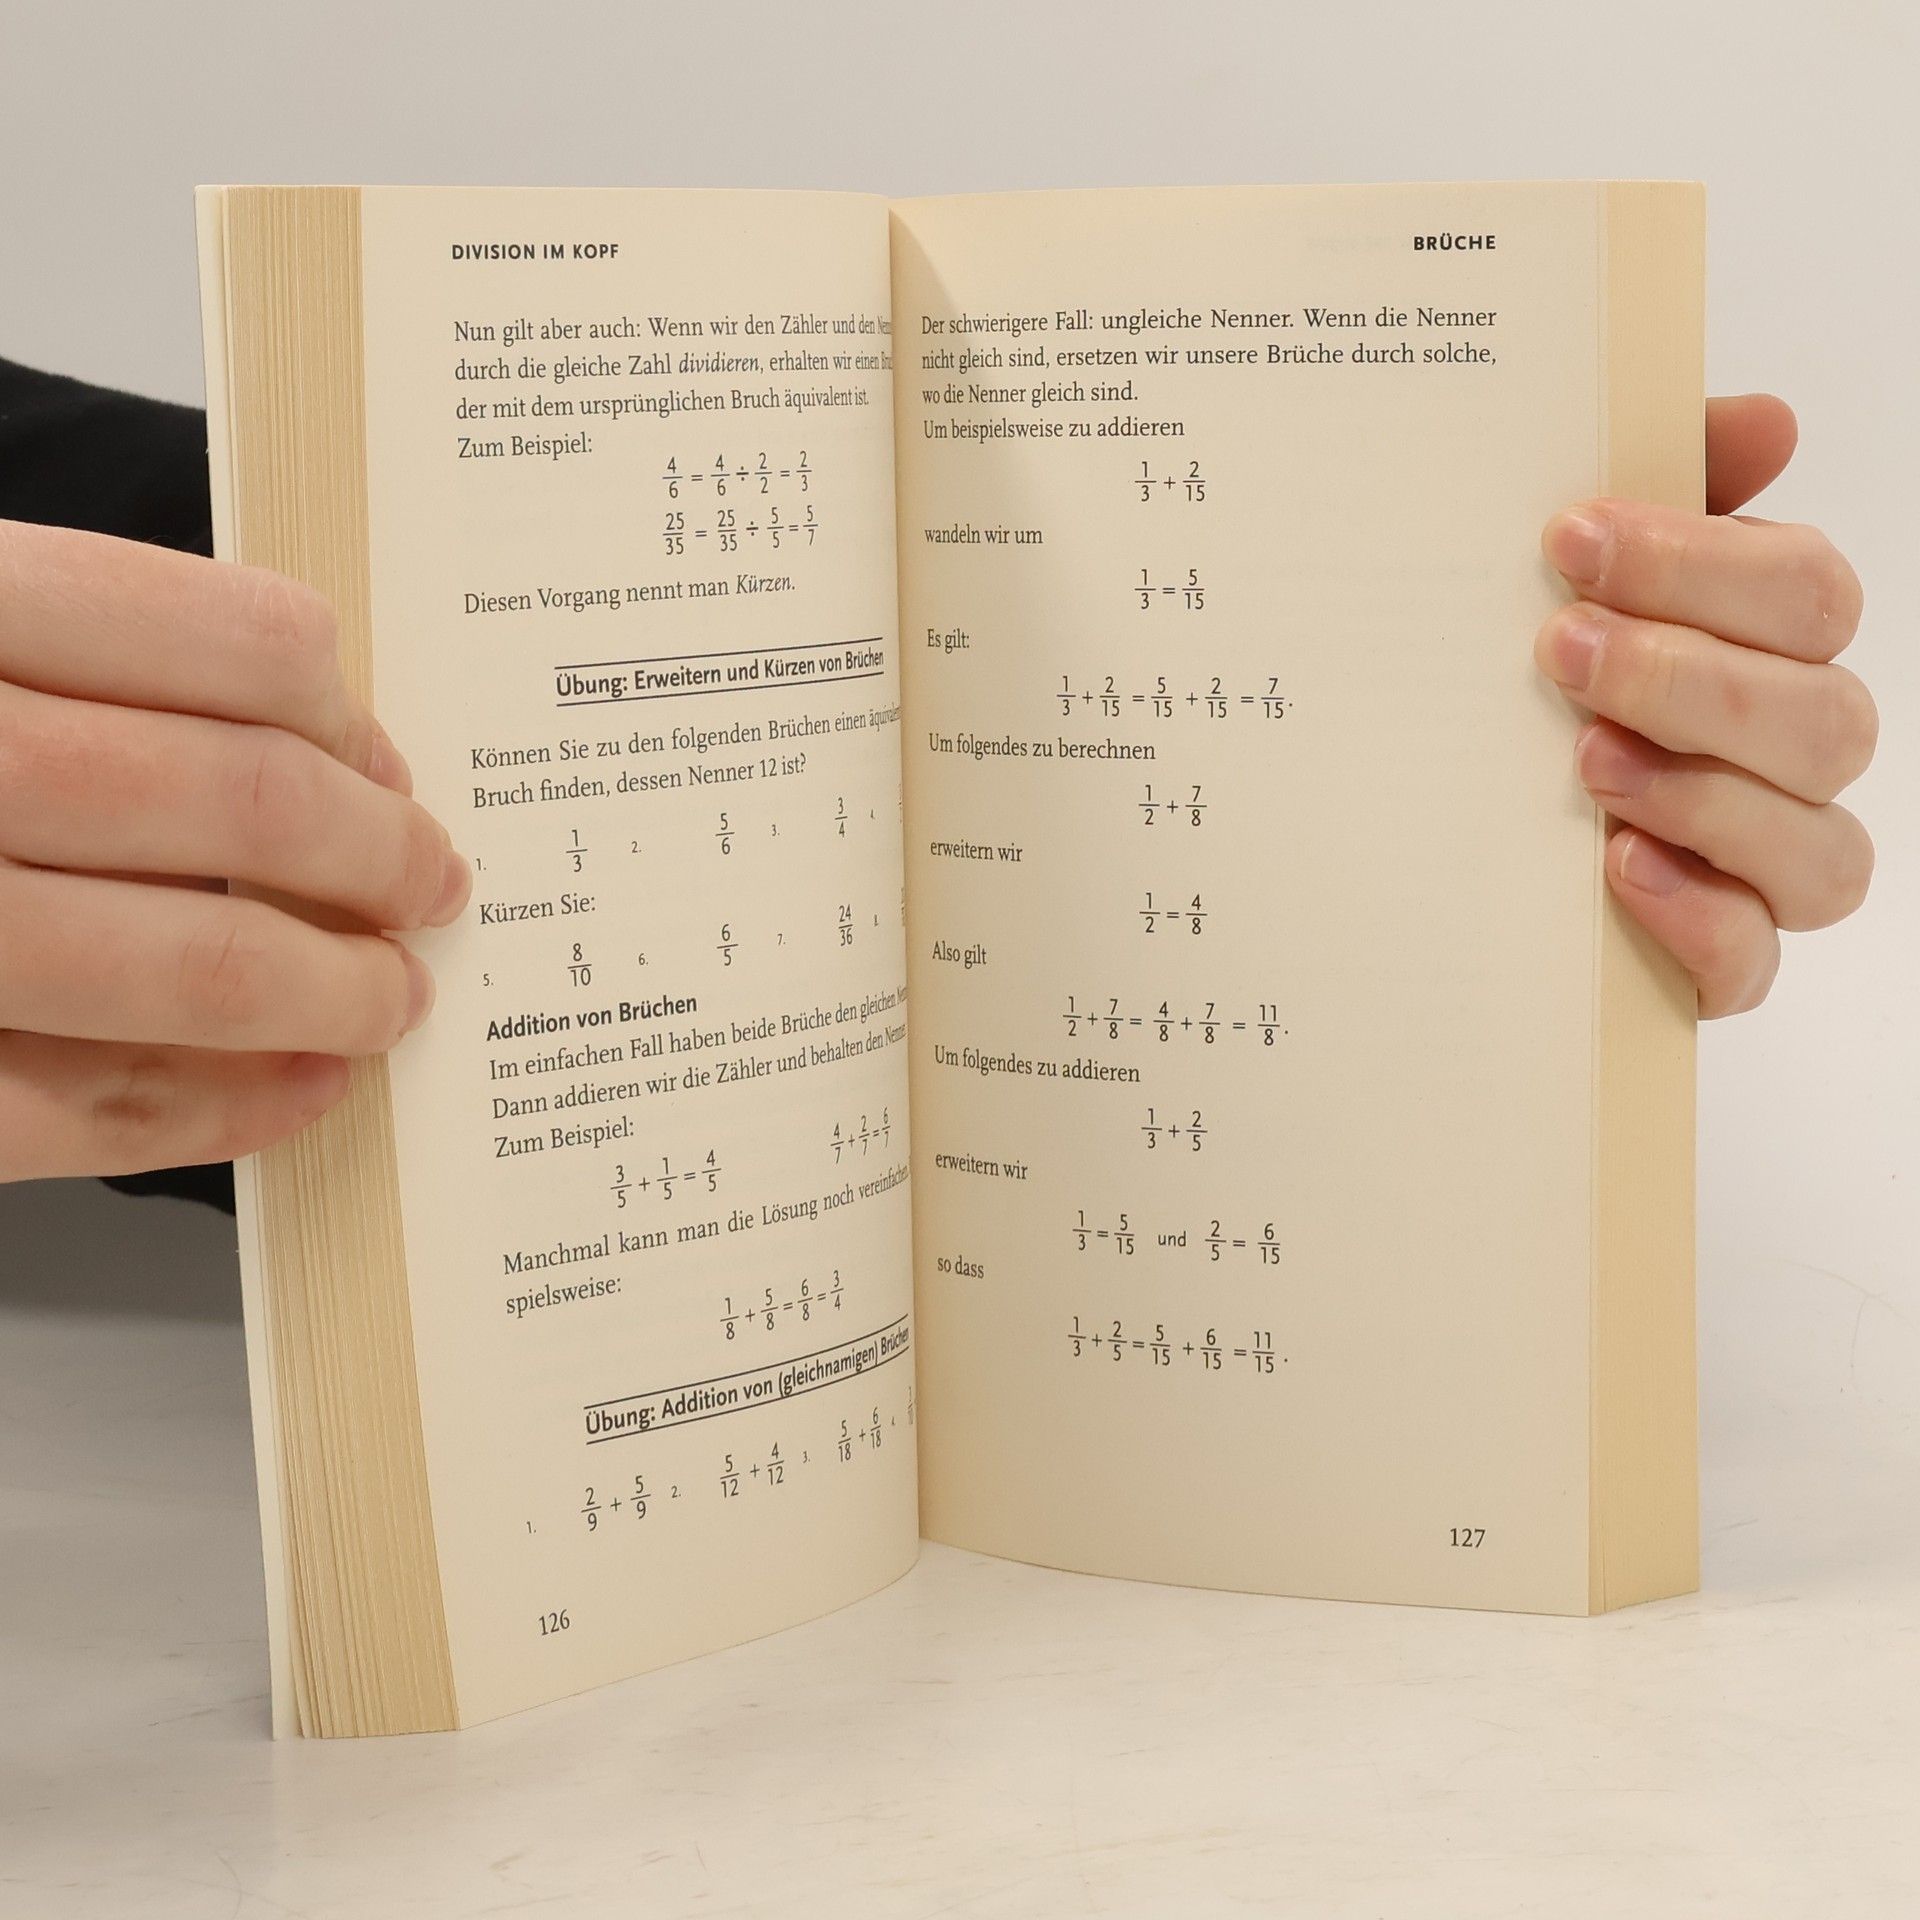 DIVISION IM KOPF
Nun gilt aber auch: Wenn wir den Zähler und den
durch die gleiche Zahl dividieren, erhalten wir einen
der mit dem ursprünglichen Bruch äquivalent ist.
Zum Beispiel:
4/6 = 4/6 ÷ 2/2 = 2/3
25/35 = 25/35 ÷ 5/5 = 5/7
Diesen Vorgang nennt man Kürzen.
Übung: Erweitern und Kürzen von Brüchen
Können Sie zu den folgenden Brüchen einen
Bruch finden, dessen Nenner 12 ist?
1. 1/3 2. 5/6 3. 3/4 4.
Kürzen Sie:
5. 8/10 6. 6/5 7. 24/36 8.
Addition von Brüchen
Im einfachen Fall haben beide Brüche den gleichen
Dann addieren wir die Zähler und behalten den
Zum Beispiel:
3/5 + 1/5 = 4/5 4/7 + 2/7 = 6/7
Manchmal kann man die Lösung noch vereinfachen.
spielsweise:
1/8 + 5/8 = 6/8 = 3/4
Übung: Addition von (gleichnamigen) Brüchen
1. 2/9 + 5/9 2. 5/12 + 4/12 3. 5/18 + 6/18 4.
126
BRÜCHE
Der schwierigere Fall: ungleiche Nenner. Wenn die Nenner
nicht gleich sind, ersetzen wir unsere Brüche durch solche,
wo die Nenner gleich sind.
Um beispielsweise zu addieren
1/3 + 2/15
wandeln wir um
1/3 = 5/15
Es gilt:
1/3 + 2/15 = 5/15 + 2/15 = 7/15.
Um folgendes zu berechnen
1/2 + 7/8
erweitern wir
1/2 = 4/8
Also gilt
1/2 + 7/8 = 4/8 + 7/8 = 11/8.
Um folgendes zu addieren
1/3 + 2/5
erweitern wir
1/3 = 5/15 und 2/5 = 6/15
so dass
1/3 + 2/5 = 5/15 + 6/15 = 11/15.
127